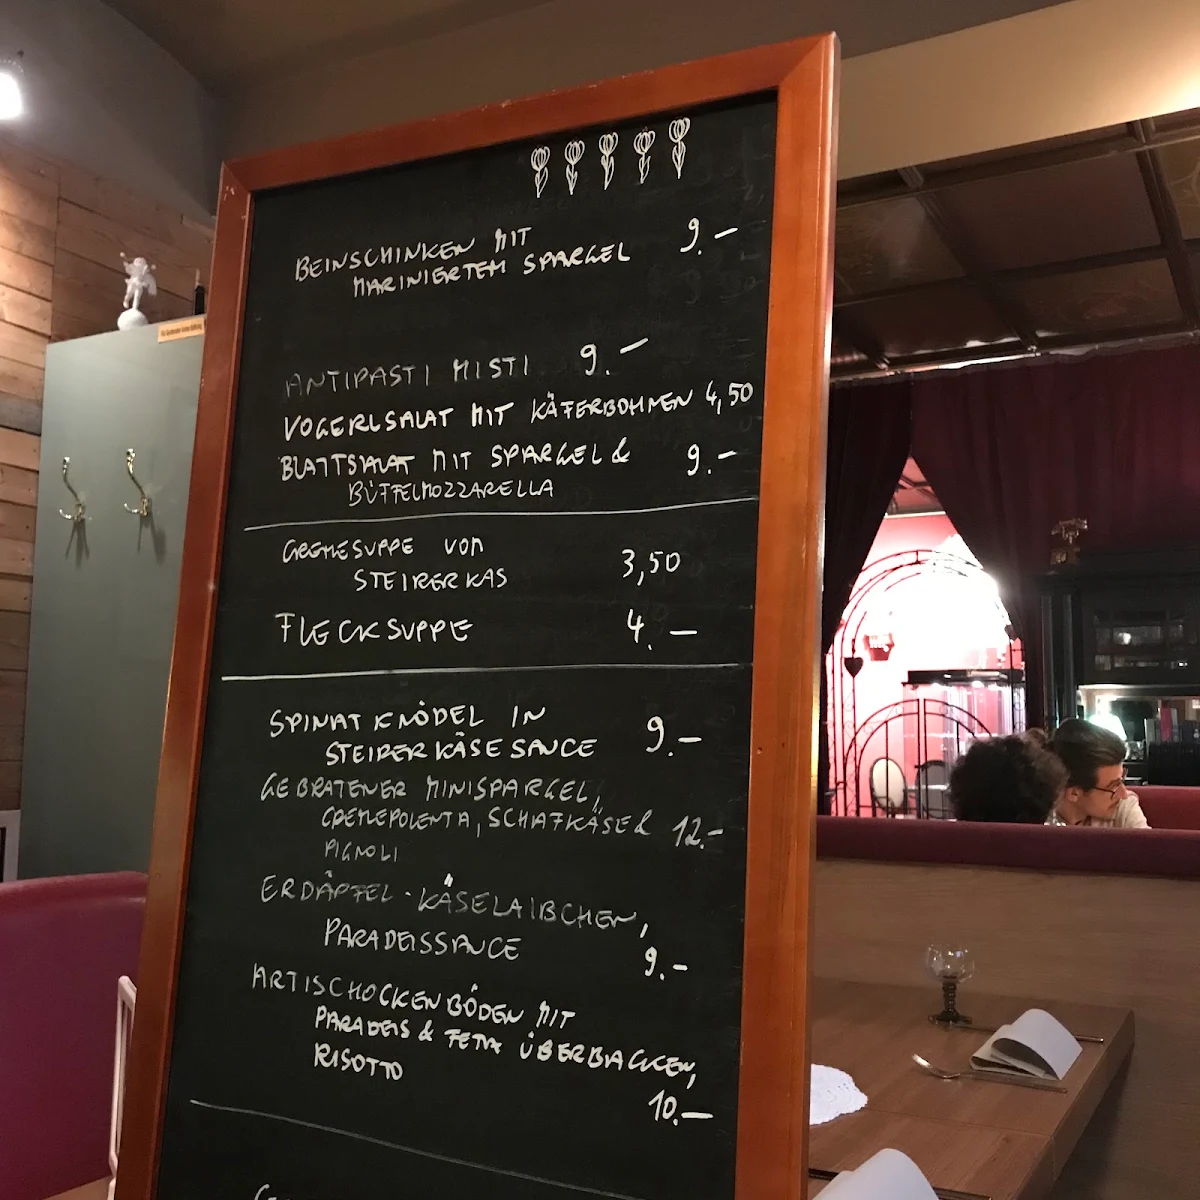 BEINSCHINKEN MIT 9.–
MARINIERTEM SPARGEL
ANTIPASTI MISTI 9.–
VOGERLSALAT MIT KÄFERBOHNEN 4,50
BLATTSALAT MIT SPARGEL & 9.–
BÜFFELMOZZARELLA
CREMESUPPE VOM
STEIRERKAS 3,50
FLECKSUPPE 4.–
SPINAT KNÖDEL IN 9.–
STEIRERKÄSE SAUCE
GEBRATENER MINISPARGEL,
CREMEPOLENTA, SCHAFKÄSE & 12.–
PIGNOLI
ERDÄPFEL-KÄSELAIBCHEN,
PARADEISSAUCE 9.–
ARTISCHOCKENBÖDEN MIT
PARADEIS & FETA ÜBERBACKEN,
RISOTTO
10.–